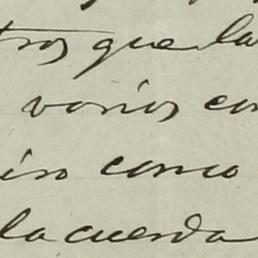 tros que la
varios con
iso como
la cuerda